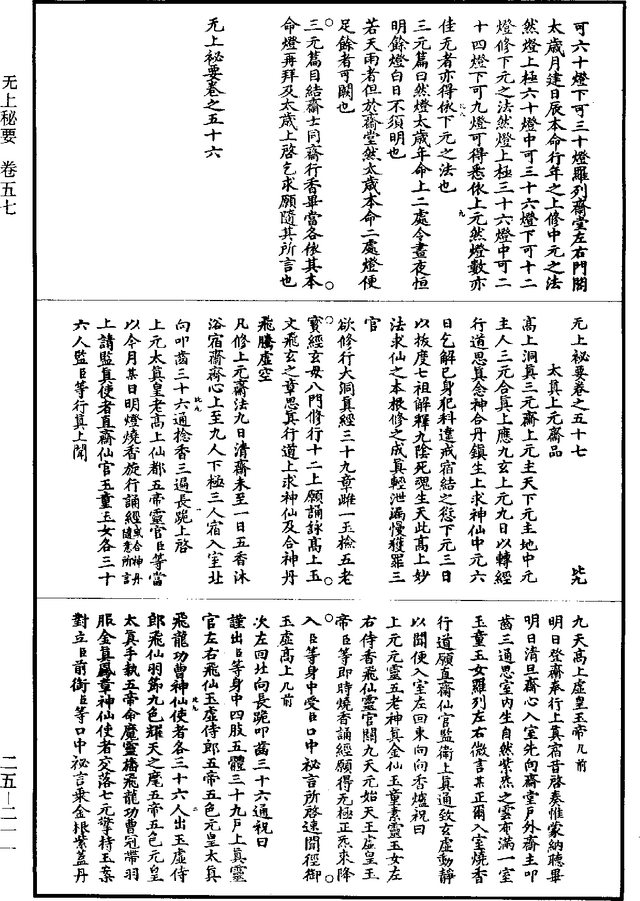 可六十燈下可三十燈羅列齋堂左右門閤
太歲月建日辰本命行年之上修中元之法
然燈上極六十燈中可三十六燈下可十二
燈修下元之法然燈上極三十六燈中可二
十四燈下可九燈可得悉依上元然燈數亦
佳无者亦得依下元之法也
三元篇曰然燈太歲年命上二處令晝夜恒
明餘燈白日不須明也
若天雨者但於齋堂然太歲本命二處燈便
足餘者可闕也
三元篇目結齋士同齋行香畢當各依其本
命燈再拜及太歲上啓乞求願隨其所言也
无上祕要卷之五十六
无上祕要 卷五七
无上祕要卷之五十七
太真上元齋品
高上洞真三元齋上元主天下元主地中元
主人三元合真上應九玄上元九日以轉經
行道思真念神合丹鎮生上求神仙中元六
日乞解己身犯科違戒宿結之愆下元三日
以拔度七祖解釋九陰死魂生天此高上妙
法求仙之本根修之成真輕泄漏慢獲罪三
官
欲修行大洞真經三十九章雌一玉檢五老
寶經玄母八門修行十二上願誦詠高上玉
文飛玄之章思真行道上求神仙及合神丹
飛騰虛空
凡修上元齋法九日清齋未至一日五香沐
浴宿齋齋心上至九人下極三人宿入室北
向叩齒三十六通捻香三遍長跪上啓
上元太真皇老高上仙都五帝靈官臣等當
以今月某日明燈燒香旋行誦經或合神丹隨意所言
上請監真使者直齋仙官玉童玉女各三十
六人監臣等行真上聞
九天高上虛皇玉帝几前
明日登齋奉行上真宿昔啓奏惟蒙納聽畢
明日清旦齋心入室先向齋堂戶外齋主叩
齒三通思室內生自然紫然之雲布滿一室
玉童玉女羅列左右微言某正爾入室燒香
行道願直齋仙官監衛上真通致玄虛動靜
以聞便入室左回東向向香爐祝曰
上元元靈五老神真金仙玉童素靈玉女左
右侍香飛仙靈官關九天元始天王虛皇玉
帝臣等即時燒香誦經願得元極正炁來降
入臣等身中受臣口中祕言所啓速聞徑御
玉虛高上几前
次左回北向長跪叩齒三十六通祝曰
謹出臣等身中四肢五體三十九戶上真靈
官左右飛仙玉虛侍郎五帝五色元皇太真
飛龍功曹神仙使者各三十六人出玉虛侍
郎飛仙羽節九色耀天之麾五帝五色元皇
太真手執五帝命魔靈幡飛龍功曹冠帶羽
服金真鳳章神仙使者交落七元擎持玉案
對立臣前銜臣等口中祕言乘金根紫蓋丹
二五—二一一